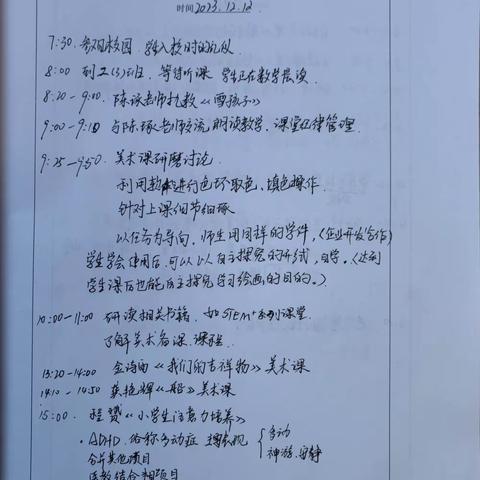 时间 2023.12.12.
7:30. 参观校园. 学生入校时的礼仪
8:00 到二(3)班, 等待听课 学生正在教学晨读.
8:20 - 9:00. 陈 老师执教《雪孩子》
9:00 - 9:10 与陈 老师交流, 朗读教学, 课堂纪律管理.
9:25 - 9:50. 美术课研磨讨论.
利用 进行色环取色、填色操作.
针对上课细节细琢
以任务为导向, 师生用同样的学件,(企业开发合作)
学生学会使用后, 可以以自主探究的形式, 自学。(达到
学生课后也能自主探究学习绘画的目的。)
10:00 - 11:00 研读相关书籍, 如STEM+系列课堂
了解美术名课. 课程.
13:20 - 14:00 《我们的吉祥物》美术课
14:10 - 14:50 《船》美术课
15:00. 程 《小学生注意力培养》
· ADHD. 俗称多动症 { 多动
合并其他项目